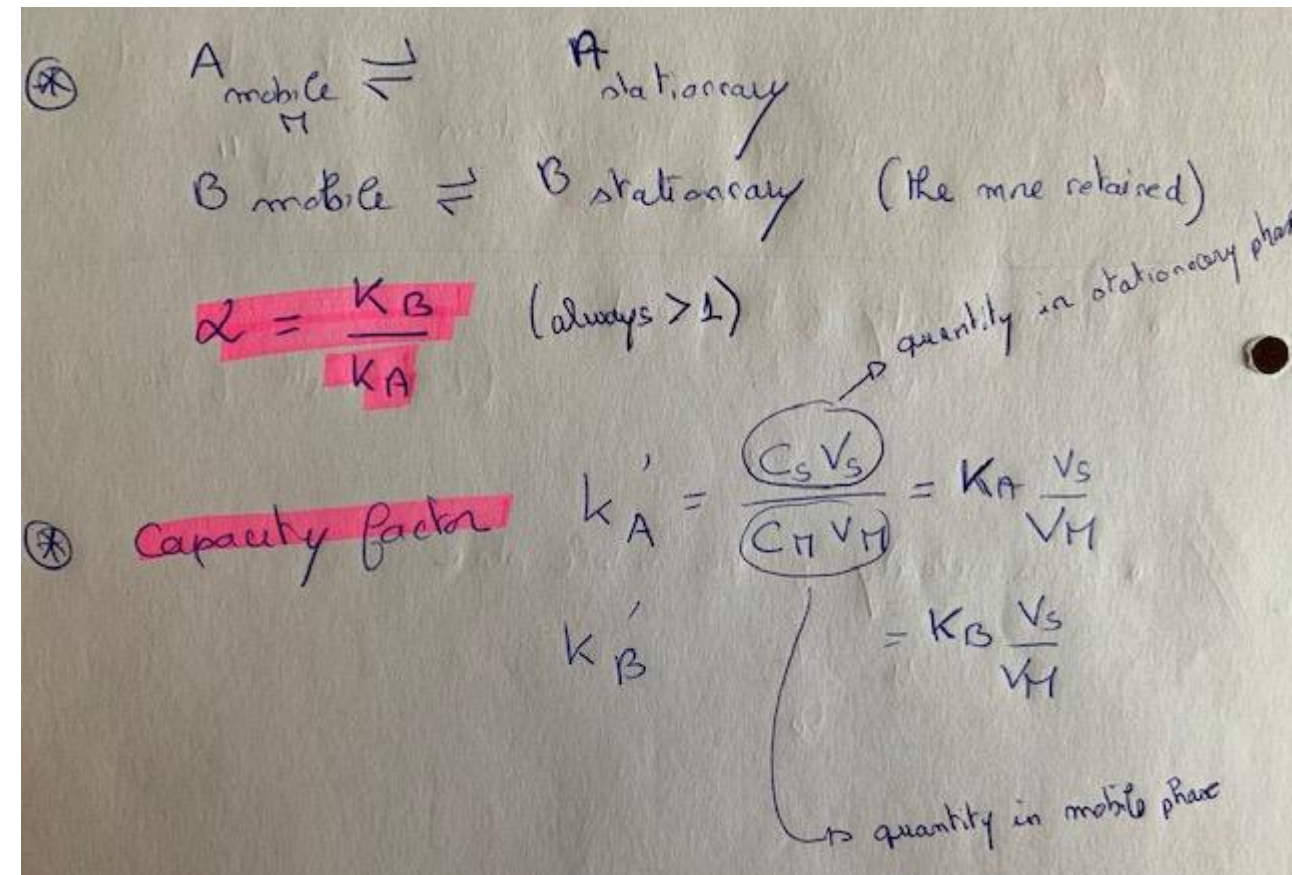 ⊛ A mobile M ⇌ A stationary
B mobile ⇌ B stationary (the more retained)
α = K B / K A (always > 1)
quantity in stationary phase
⊛ Capacity factor k'A = Cs Vs / CM VM = KA Vs / VM
k'B = KB Vs / VM
quantity in mobile phase